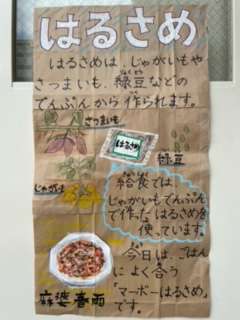 はるさめ
はるさめは、じゃがいもや
さつまいも、緑豆などの
でんぷんから作られます。
さつまいも
はるさめ
緑豆
じゃがいも
給食では、
じゃがいもでんぷん
で作ったはるさめを
使っています。
今日は、ごはん
によく合う
「マーボーはるさめ」
です。
麻婆春雨